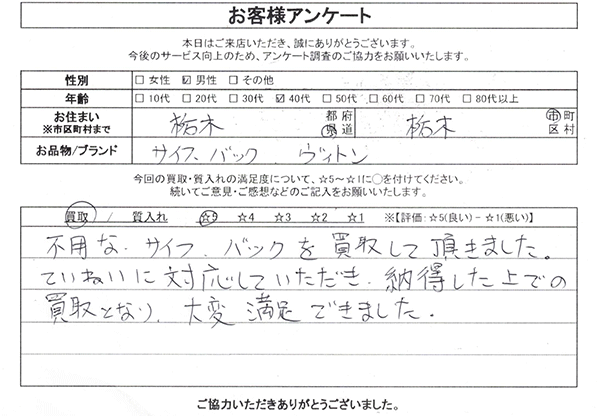 お客様アンケート
本日はご来店いただき、誠にありがとうございます。
今後のサービス向上のため、アンケート調査のご協力をお願いいたします。
性別 □ 女性 ☑ 男性 □ その他
年齢 □ 10代 □ 20代 □ 30代 ☑ 40代 □ 50代 □ 60代 □ 70代 □ 80代以上
お住まい 栃木 都府 栃木 市町
※市区町村まで 県道 区村
お品物/ブランド サイフ、バック ヴィトン
今回の買取・質入れの満足度について、☆5~☆1に〇を付けてください。
続いてご意見・ご感想などのご記入をお願いいたします。
買取 / 質入れ ☆5 ☆4 ☆3 ☆2 ☆1 ※【評価:☆5(良い) - ☆1(悪い)】
不用な、サイフ、バックを買取して頂きました。
ていねいに対応していただき、納得した上での
買取となり、大変満足できました。
ご協力いただきありがとうございました。